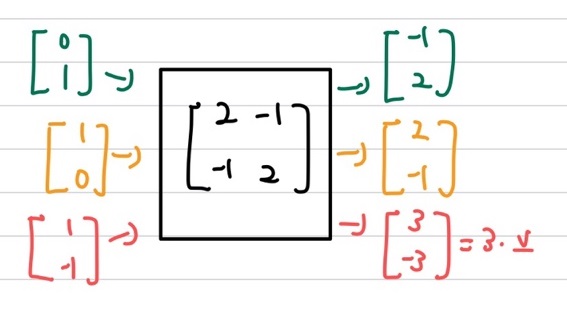 [0 1] → [-1 2]
[1 0] → [2 -1 -1 2] → [2 -1]
[1 -1] → → [3 -3] = 3 · v